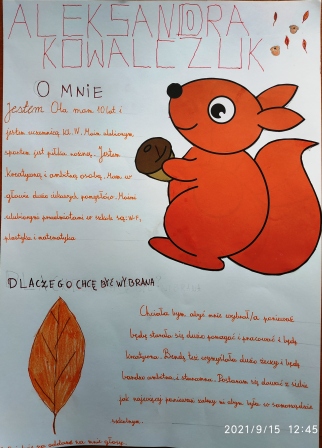 ALEKSANDRA
KOWALCZUK
O MNIE
Jestem Ola mam 10 lat i
jestem uczennicą kl. IV. Moim ulubionym
sportem jest piłka nożna. Jestem
kreatywną i ambitną osobą. Mam w
głowie dużo ciekawych pomysłów. Moimi
ulubionymi przedmiotami w szkole są: W-F,
plastyka i matematyka
DLACZEGO CHCĘ BYĆ WYBRANA
Chciała bym, abyś mnie wybrał/a ponieważ
będę starała się dużo pomagać i pracować i będę
kreatywna. Będę też wymyślała dużo rzeczy i będę
bardzo ambitna i staranna. Postaram się dawać z siebie
jak najwięcej ponieważ zależy mi abym była w samorządzie
szkolnym.
2021/9/15 12:45
za oddane na mnie głosy.